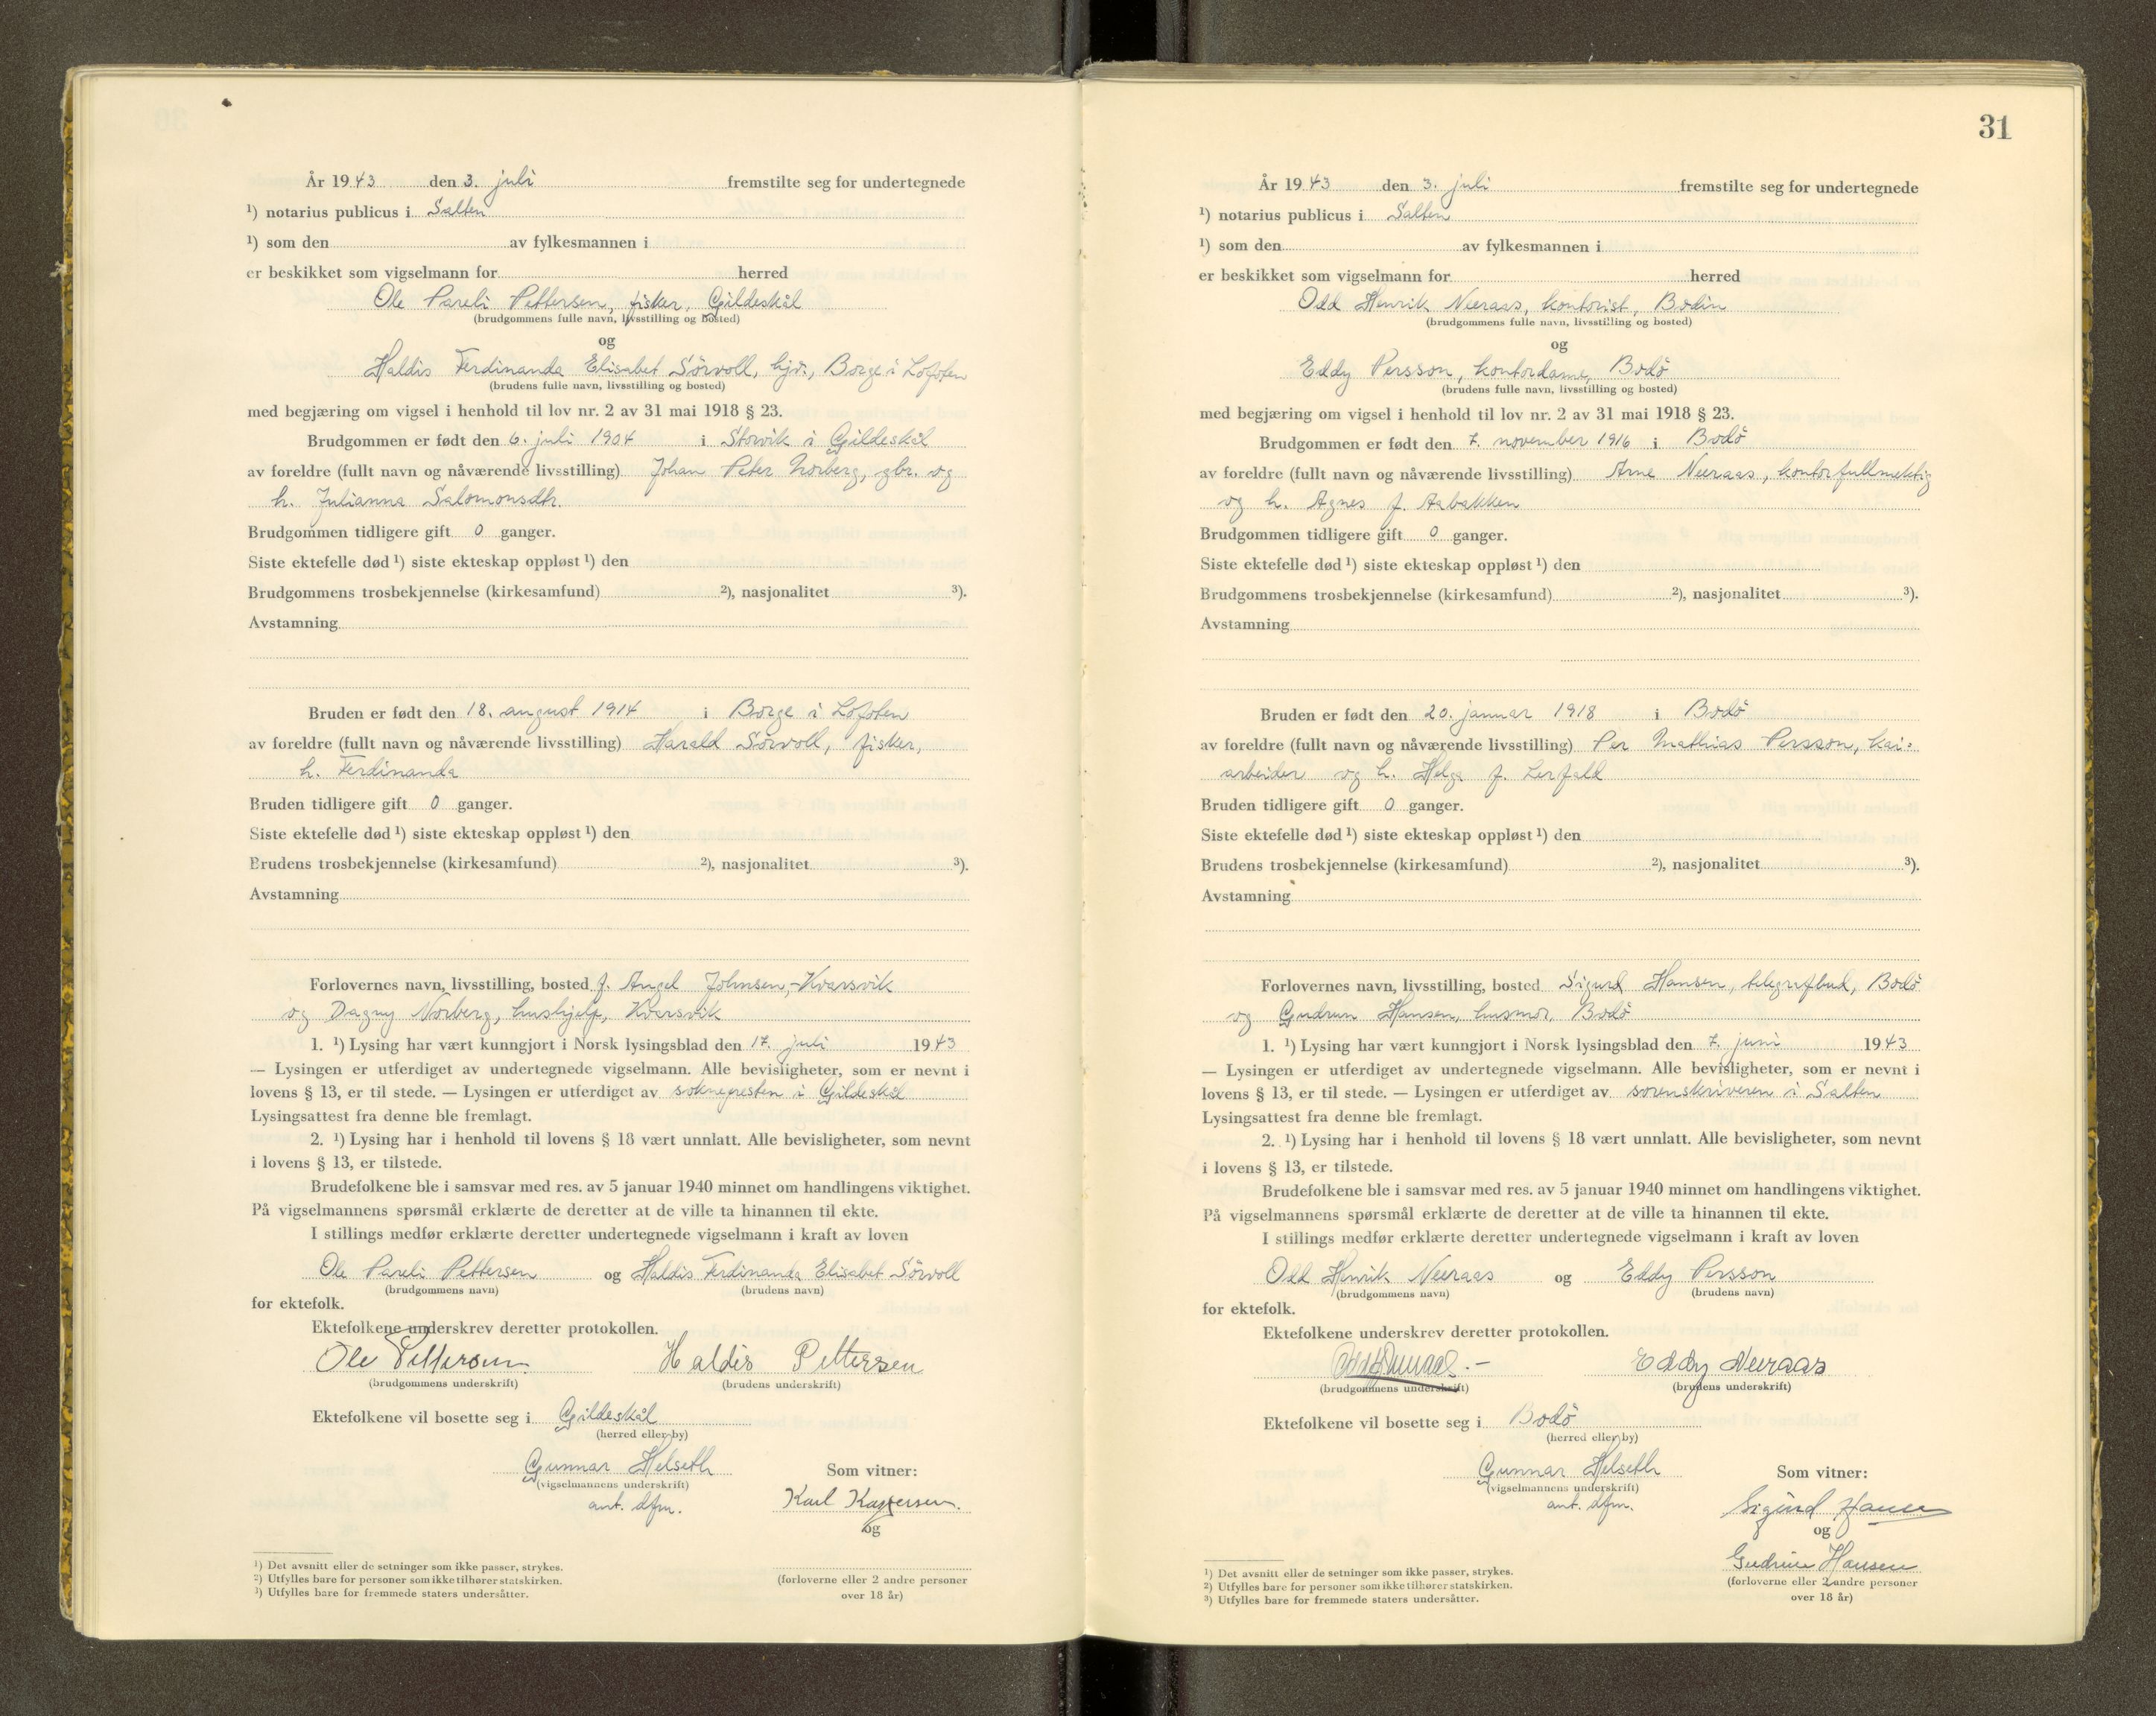 År 1943 den 3. juli fremstilte seg for undertegnede
¹) notarius publicus i Salten
¹) som den av fylkesmannen i
er beskikket som vigselmann for herred
Ole Pareli Pettersen, fisker, Gildeskål
(brudgommens fulle navn, livsstilling og bosted)
og
Haldis Ferdinanda Elisabet Sörvoll, hjv., Borge i Lofoten
(brudens fulle navn, livsstilling og bosted)
med begjæring om vigsel i henhold til lov nr. 2 av 31 mai 1918 § 23.
Brudgommen er født den 6. juli 1904 i Storvik i Gildeskål
av foreldre (fullt navn og nåværende livsstilling) Johan Peter Norberg, gbr. og
h. Julianna Salomonsdtr.
Brudgommen tidligere gift 0 ganger.
Siste ektefelle død ¹) siste ekteskap oppløst ¹) den
Brudgommens trosbekjennelse (kirkesamfund) ²), nasjonalitet ³).
Avstamning
Bruden er født den 18. august 1914 i Borge i Lofoten
av foreldre (fullt navn og nåværende livsstilling) Harald Sörvoll, fisker,
h. Ferdinanda
Bruden tidligere gift 0 ganger.
Siste ektefelle død ¹) siste ekteskap oppløst ¹) den
Brudens trosbekjennelse (kirkesamfund) ²), nasjonalitet ³).
Avstamning
Forlovernes navn, livsstilling, bosted J. Angel Johnsen, Kvarsvik
og Dagny Norberg, hushjelp, Kvarsvik
1. ¹) Lysing har vært kunngjort i Norsk lysingsblad den 17. juli 1943
— Lysingen er utferdiget av undertegnede vigselmann. Alle bevisligheter, som er nevnt i
lovens § 13, er til stede. — Lysingen er utferdiget av soknepresten i Gildeskål
Lysingsattest fra denne ble fremlagt.
2. ¹) Lysing har i henhold til lovens § 18 vært unnlatt. Alle bevisligheter, som nevnt
i lovens § 13, er tilstede.
Brudefolkene ble i samsvar med res. av 5 januar 1940 minnet om handlingens viktighet.
På vigselmannens spørsmål erklærte de deretter at de ville ta hinannen til ekte.
I stillings medfør erklærte deretter undertegnede vigselmann i kraft av loven
Ole Pareli Pettersen og Haldis Ferdinanda Elisabet Sörvoll
(brudgommens navn) (brudens navn)
for ektefolk.
Ektefolkene underskrev deretter protokollen.
Ole Pettersen Haldis Pettersen
(brudgommens underskrift) (brudens underskrift)
Ektefolkene vil bosette seg i Gildeskål
(herred eller by)
Gunnar Helseth Som vitner:
(vigselmannens underskrift)
ant. dfm. Karl Kaspersen.
og
¹) Det avsnitt eller de setninger som ikke passer, strykes.
²) Utfylles bare for personer som ikke tilhører statskirken.
³) Utfylles bare for fremmede staters undersåtter.
(forloverne eller 2 andre personer
over 18 år)
31
År 1943 den 3. juli fremstilte seg for undertegnede
¹) notarius publicus i Salten
¹) som den av fylkesmannen i
er beskikket som vigselmann for herred
Odd Henrik Neeraas, kontorist, Bodin
(brudgommens fulle navn, livsstilling og bosted)
og
Eddy Persson, kontordame, Bodö
(brudens fulle navn, livsstilling og bosted)
med begjæring om vigsel i henhold til lov nr. 2 av 31 mai 1918 § 23.
Brudgommen er født den 7. november 1916 i Bodö
av foreldre (fullt navn og nåværende livsstilling) Arne Neeraas, kontorfullmektig
og h. Agnes f. Aabakken
Brudgommen tidligere gift 0 ganger.
Siste ektefelle død ¹) siste ekteskap oppløst ¹) den
Brudgommens trosbekjennelse (kirkesamfund) ²), nasjonalitet ³).
Avstamning
Bruden er født den 20. januar 1918 i Bodö
av foreldre (fullt navn og nåværende livsstilling) Per Mathias Persson, kai-
arbeider og h. Helga f. Lerfald
Bruden tidligere gift 0 ganger.
Siste ektefelle død ¹) siste ekteskap oppløst ¹) den
Brudens trosbekjennelse (kirkesamfund) ²), nasjonalitet ³).
Avstamning
Forlovernes navn, livsstilling, bosted Sigurd Hansen, telegrafbud, Bodö
og Gudrun Hansen, husmor, Bodö
1. ¹) Lysing har vært kunngjort i Norsk lysingsblad den 7. juni 1943
— Lysingen er utferdiget av undertegnede vigselmann. Alle bevisligheter, som er nevnt i
lovens § 13, er til stede. — Lysingen er utferdiget av sorenskriveren i Salten
Lysingsattest fra denne ble fremlagt.
2. ¹) Lysing har i henhold til lovens § 18 vært unnlatt. Alle bevisligheter, som nevnt
i lovens § 13, er tilstede.
Brudefolkene ble i samsvar med res. av 5 januar 1940 minnet om handlingens viktighet.
På vigselmannens spørsmål erklærte de deretter at de ville ta hinannen til ekte.
I stillings medfør erklærte deretter undertegnede vigselmann i kraft av loven
Odd Henrik Neeraas og Eddy Persson
(brudgommens navn) (brudens navn)
for ektefolk.
Ektefolkene underskrev deretter protokollen.
Eddy Neeraas
(brudgommens underskrift) (brudens underskrift)
Ektefolkene vil bosette seg i Bodö
(herred eller by)
Gunnar Helseth Som vitner:
(vigselmannens underskrift)
ant. dfm. Sigurd Hansen
og
Gudrun Hansen
¹) Det avsnitt eller de setninger som ikke passer, strykes.
²) Utfylles bare for personer som ikke tilhører statskirken.
³) Utfylles bare for fremmede staters undersåtter.
(forloverne eller 2 andre personer
over 18 år)